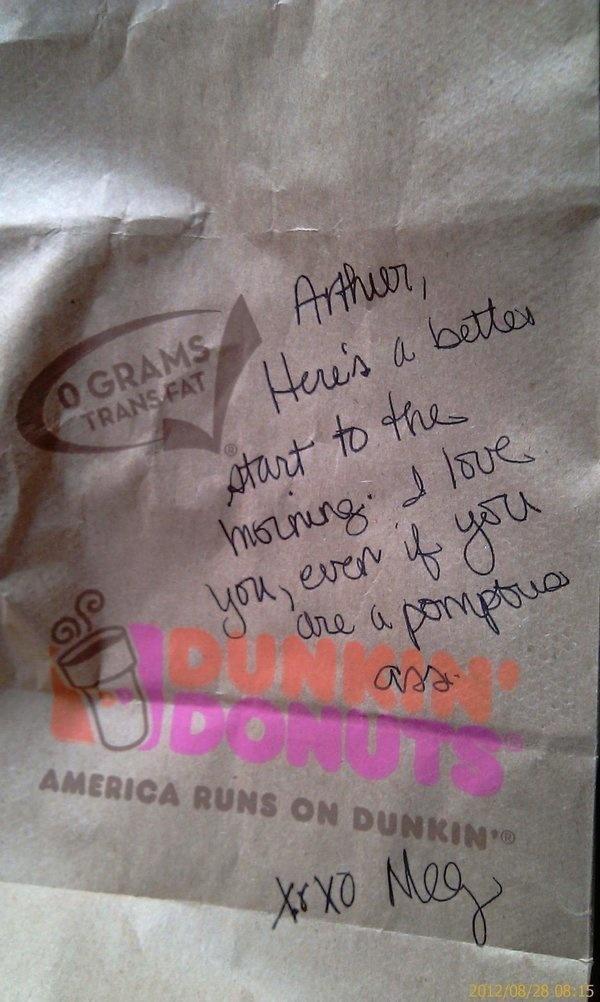 Arthur,
Here's a better
start to the
morning. I love
you, even if you
are a pomptous
ass.
0 GRAMS
TRANS FAT
®
DUNKIN'
DONUTS
AMERICA RUNS ON DUNKIN'®
XoXO Meg
2012/08/28 08:15